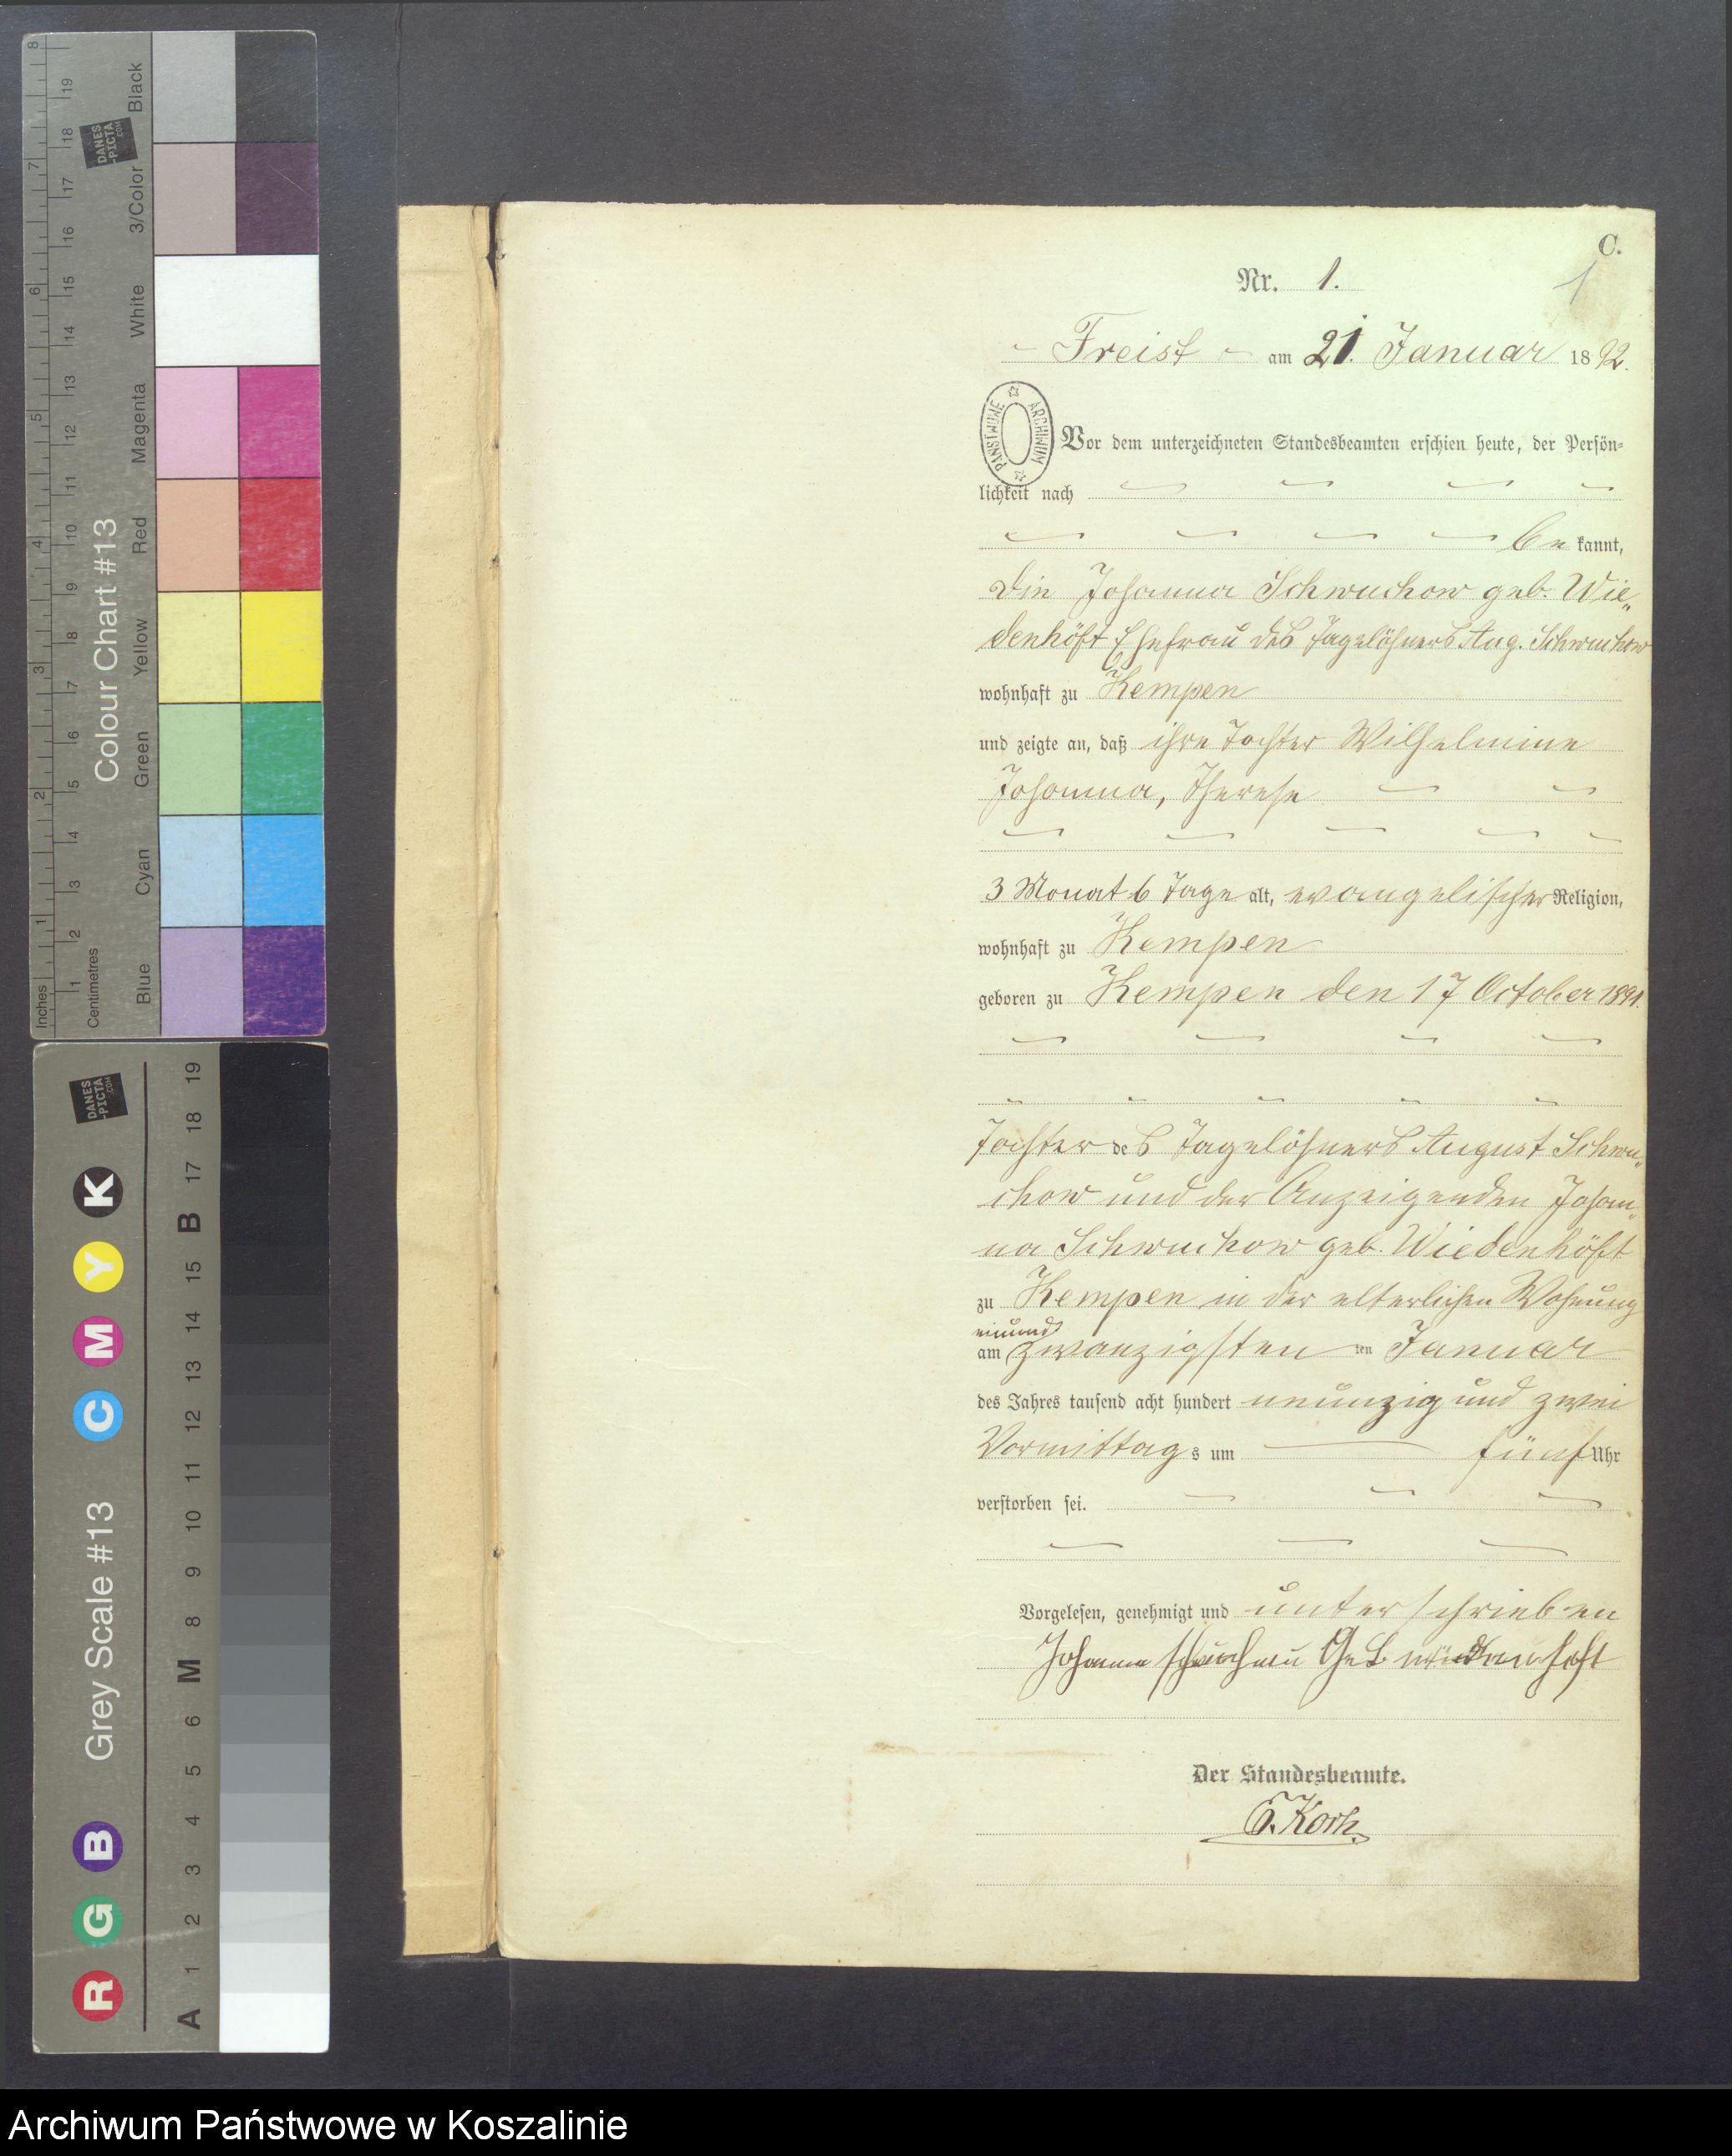 C.
Nr. 1.
1
Freist am 21. Januar 1892.
PAŃSTWOWE ARCHIWUM
Vor dem unterzeichneten Standesbeamten erschien heute, der Persön=
lichkeit nach
bekannt,
die Johanna Schwuchow geb. Wie„
denhöft Ehefrau des Tagelöhners Aug. Schwuchow
wohnhaft zu Kempen
und zeigte an, daß ihre Tochter Wilhelmine
Johanna, Therese
3 Monat 6 Tage alt, evangelischer Religion,
wohnhaft zu Kempen
geboren zu Kempen den 17 October 1891.
Tochter des Tagelöhners August Schwu„
chow und der Anzeigenden Johan„
na Schwuchow geb. Wiedenhöft
zu Kempen in der elterlichen Wohnung
einund
am zwanzigsten ten Januar
des Jahres tausend acht hundert neunzig und zwei
Vormittags um fünf Uhr
verstorben sei.
Vorgelesen, genehmigt und unterschrieben
Johanna Geb
Der Standesbeamte.
Inches 1 2 3 4 5 6 7 8
Centimetres 1 2 3 4 5 6 7 8 9 10 11 12 13 14 15 16 17 18 19
Colour Chart #13
Blue Cyan Green Yellow Red Magenta White 3/Color Black
DANES
-PICTA
.COM
Grey Scale #13
R G B C M Y K
A 1 2 3 4 5 6 M 8 9 10 11 12 13 14 15 B 17 18 19
DANES
-PICTA
.COM
Archiwum Państwowe w Koszalinie